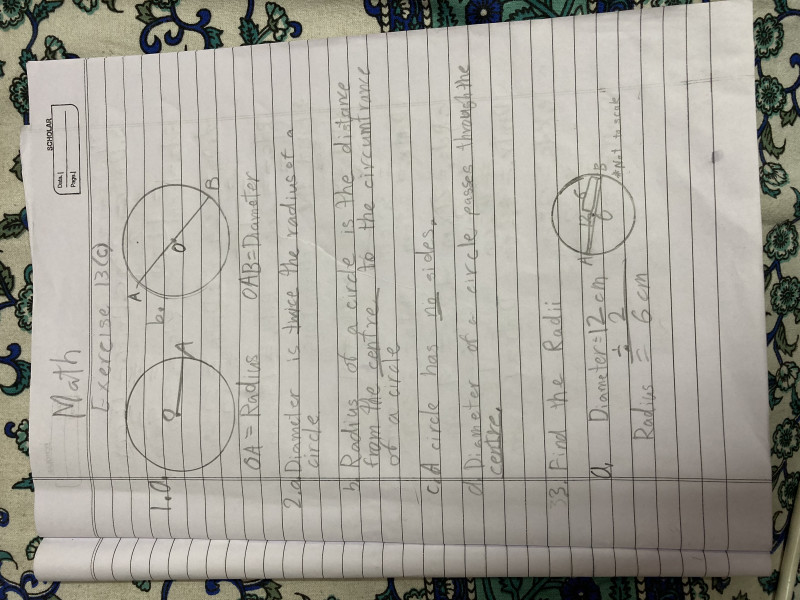 SCHOLAR
Date
Page
Math
Exercise 13(c)
1.a. O A b. A O B
OA = Radius OAB = Diameter
2.a. Diameter is twice the radius of a
circle
b. Radius of a circle is the distance
from the centre to the circumfrance
of a circle
c. A circle has no sides.
d. Diameter of a circle passes through the
centre.
3. Find the Radii
a. Diameter = 12 cm A B
÷ 2 "Not to scale"
Radius = 6 cm